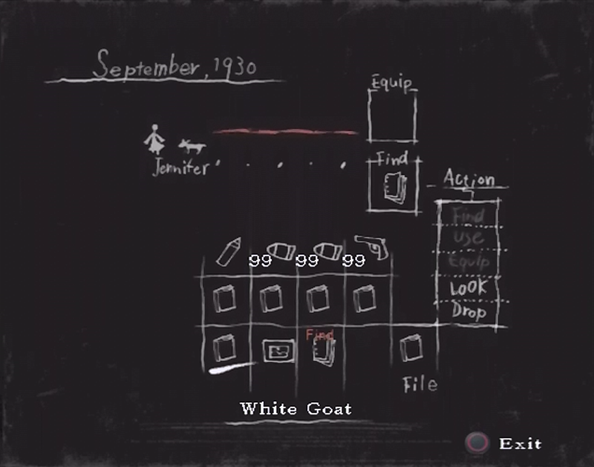 September, 1930
Equip
Jennifer
Find
Action
Find
Use
Equip
LOOK
Drop
99 99 99
Find
File
White Goat
Exit